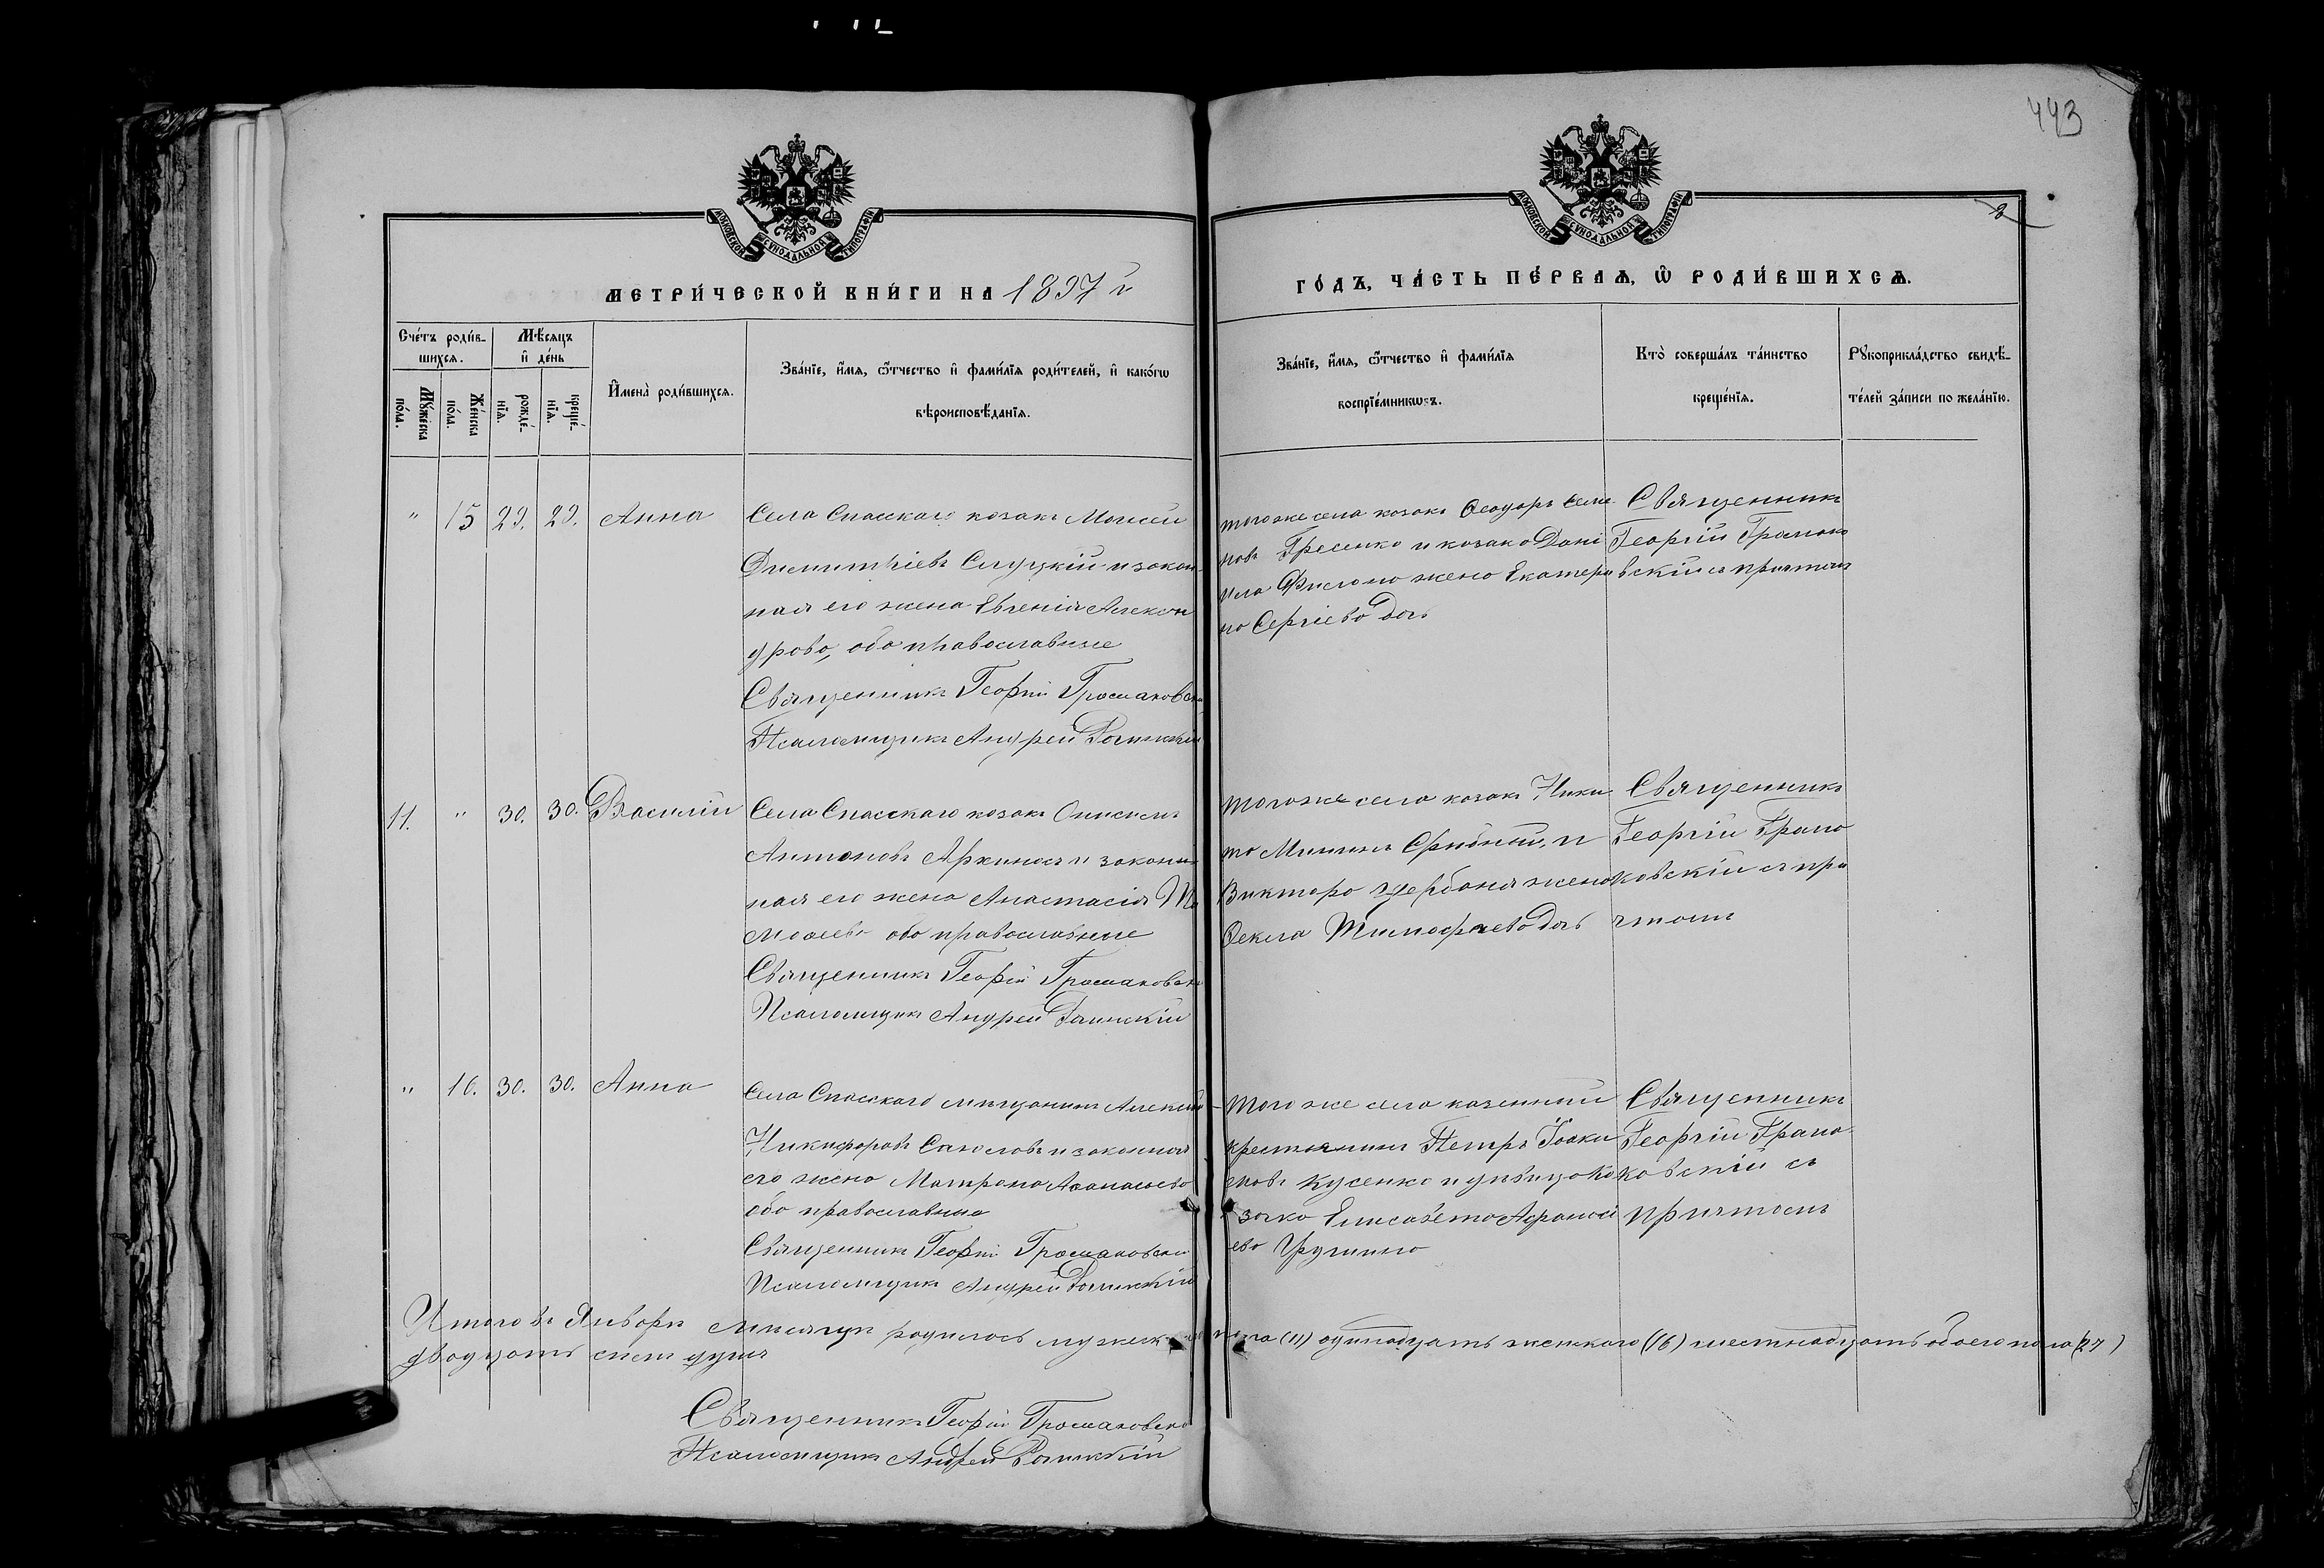 443
3
МОСКОВСКОЙ СѴНОДАЛЬНОЙ ТИПОГРАФІИ
МОСКОВСКОЙ СѴНОДАЛЬНОЙ ТИПОГРАФІИ
МЕТРИ́ЧЕСКОЙ КНИ́ГИ НА 1897 г
ГО́ДЪ, ЧА́СТЬ ПЕ́РВАѦ, Ѡ РОДИ́ВШИХСѦ.
Сче́тъ роди́в-
шихся.
Мꙋ́жеска
по́ла.
Же́нска
по́ла.
Мѣ́сяцъ
и҆ де́нь
рожде́-
нїя.
креще́-
нїя.
И҆мена̀ роди́вшихся.
Зва́нїе, и҆́мя, ѻ҆́тчество и҆ фами́лїя роди́телей, и҆ како́гѡ
вѣроисповѣ́данїя.
Зва́нїе, и҆́мя, ѻ҆́тчество и҆ фами́лїя
воспрїе́мникѡвъ.
Кто̀ соверша́лъ та́инство
креще́нїя.
Рꙋкоприкла́дство свидѣ́-
телей за́писи по жела́нїю.
" 15 29. 29. Анна
Села Спасскаго козакъ Моисей
Димитріевъ Слуцкій и закон
ная его жена Евгенія Алексан
дрова, оба православные
Священникъ Георгій Громаковскі
Псаломщикъ Андрей
тогоже села козакъ Ѳеодоръ Семе
новъ и козака Дани
ила жена Екатери
на Сергіева дочь
Священникъ
Георгій Грамако
вскій съ причтомъ
11. " 30. 30. Василій
Села Спасскаго козакъ Онисимъ
Антоновъ и закон
ная его жена Анастасія
оба православные
Священникъ Георгій Громаковскі
Псаломщикъ Андрей
тогоже села козакъ Ники
та и
Виктора жена
Ѳекла Тимофѣева дочь
Священникъ
Георгій Грама
ковскій съ при
чтомъ
" 16. 30. 30. Анна
Села Спасскаго мѣщанинъ Алексѣй
Никифоровъ и законная
его жена Матрона Аѳанасьева
оба православные
Священникъ Георгій Громаковскій
Псаломщикъ Андрей
Того же села казенный
крестьянинъ Петръ Іоаки
мовъ Кусенко и дѣвица Ко
зачка Елисавета Афанасі
ева
Священникъ
Георгій Грама
ковскій съ
причтомъ
Итого въ Январѣ мѣсяцѣ родилось мужеск пола (11) одинадцать женскаго (16) шестнадцать обоего пола (27)
двадцать семь душъ
Священникъ Георгій Громаковскі
Псаломщикъ Андрей